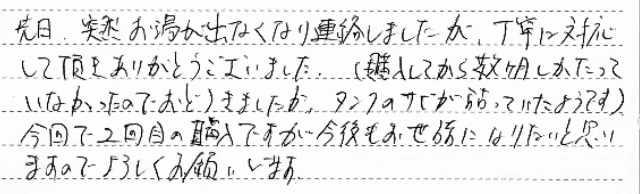 先日、突然お湯が出なくなり連絡しましたが、丁寧に対応
して頂きありがとうございました。(購入してから数ヶ月しかたって
いなかったのでおどろきましたが、タンクのサビが詰っていたようです)
今回で2回目の購入ですが今後もお世話になりたいと思い
ますのでよろしくお願いします。